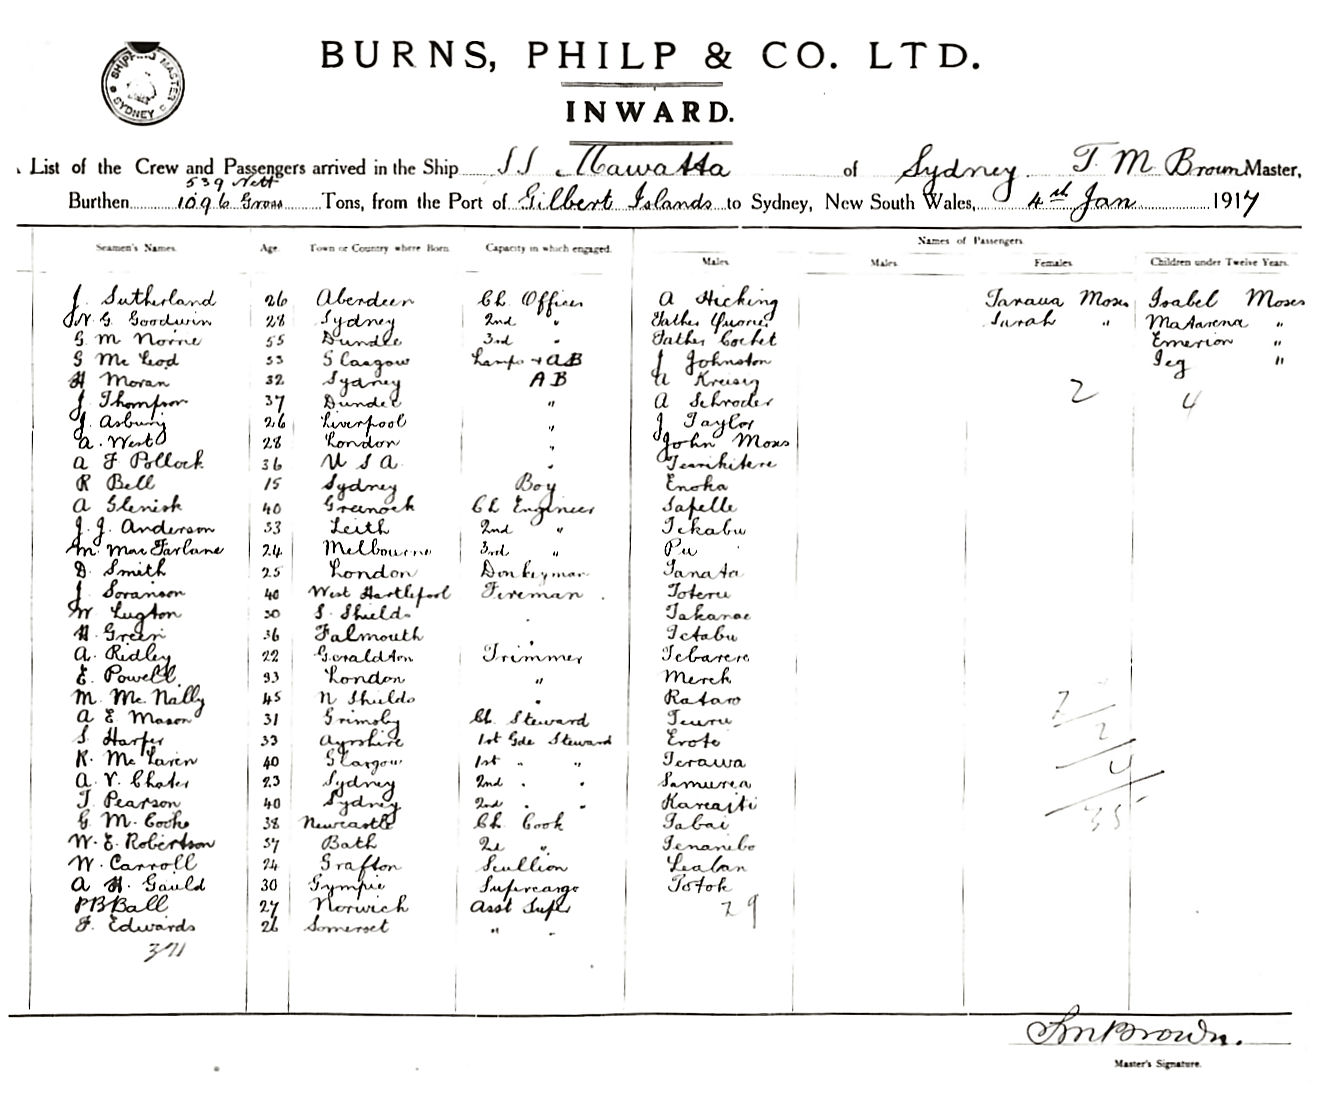 BURNS, PHILP & CO. LTD.
SHIPPING MASTER SYDNEY
INWARD.
List of the Crew and Passengers arrived in the Ship SS Mawatta of Sydney T. M Brown Master,
539 Nett
Burthen 1096 Gross Tons, from the Port of Gilbert Islands to Sydney, New South Wales, 4th Jan 1917
Names of Passengers.
Seamen's Names. Age. Town or Country where Born. Capacity in which engaged. Males. Males. Females. Children under Twelve Years.
J. Sutherland 26 Aberdeen Ch Officer A Hicking Tarawa Moses Isabel Moses
N. G. Goodwin 28 Sydney 2nd " Father Sarah " Matarena "
G. M Norrie 55 Dundee 3rd " Father Cochet Emerion "
G Mc Leod 53 Glasgow Lamps + AB J Johnston Teg "
H Moran 32 Sydney AB A Kreisig 2
J. Thompson 37 Dundee " A Schroder 4
J. Asbury 26 Liverpool " J Taylor
A. West 28 London " John Moses
A F Pollock 36 U S A " Tearikitere
R Bell 15 Sydney Boy Enoka
A Glenish 40 Greenock Ch Engineer Sapelle
J. J. Anderson 53 Leith 2nd " Tekabu
M. MacFarlane 24 Melbourne 3rd " Pu
D. Smith 25 London Donkeyman Tanata
J Soranson 40 West Hartlepool Fireman Toteru
W Lugton 30 S. Shields " Takanae
H. Green 36 Falmouth " Tetabu
A. Ridley 22 Geraldton Trimmer Tebarere
E. Powell 33 London " Merek
M. Mc Nally 45 N Shields " Rataro
A E Mason 31 Grimsby Ch. Steward Teuru
S Harper 33 Ayrshire 1st Gde Steward Erote
R. Mc Laren 40 Glasgow 1st " " Terawa
A. V. Chater 23 Sydney 2nd " " Samurea
T Pearson 40 Sydney 2nd " " Kareaiti
G. M. Cooke 38 Newcastle Ch Cook Tabai
W. E. Robertson 37 Bath 2nd " Tenanibo
W. Carroll 24 Grafton Scullion Leaban
A H. Gauld 30 Gympie Supercargo Totok
P B Ball 27 Norwich Asst Super 29
F. Edwards 26 Somerset " "
2
4
35
Master's Signature.